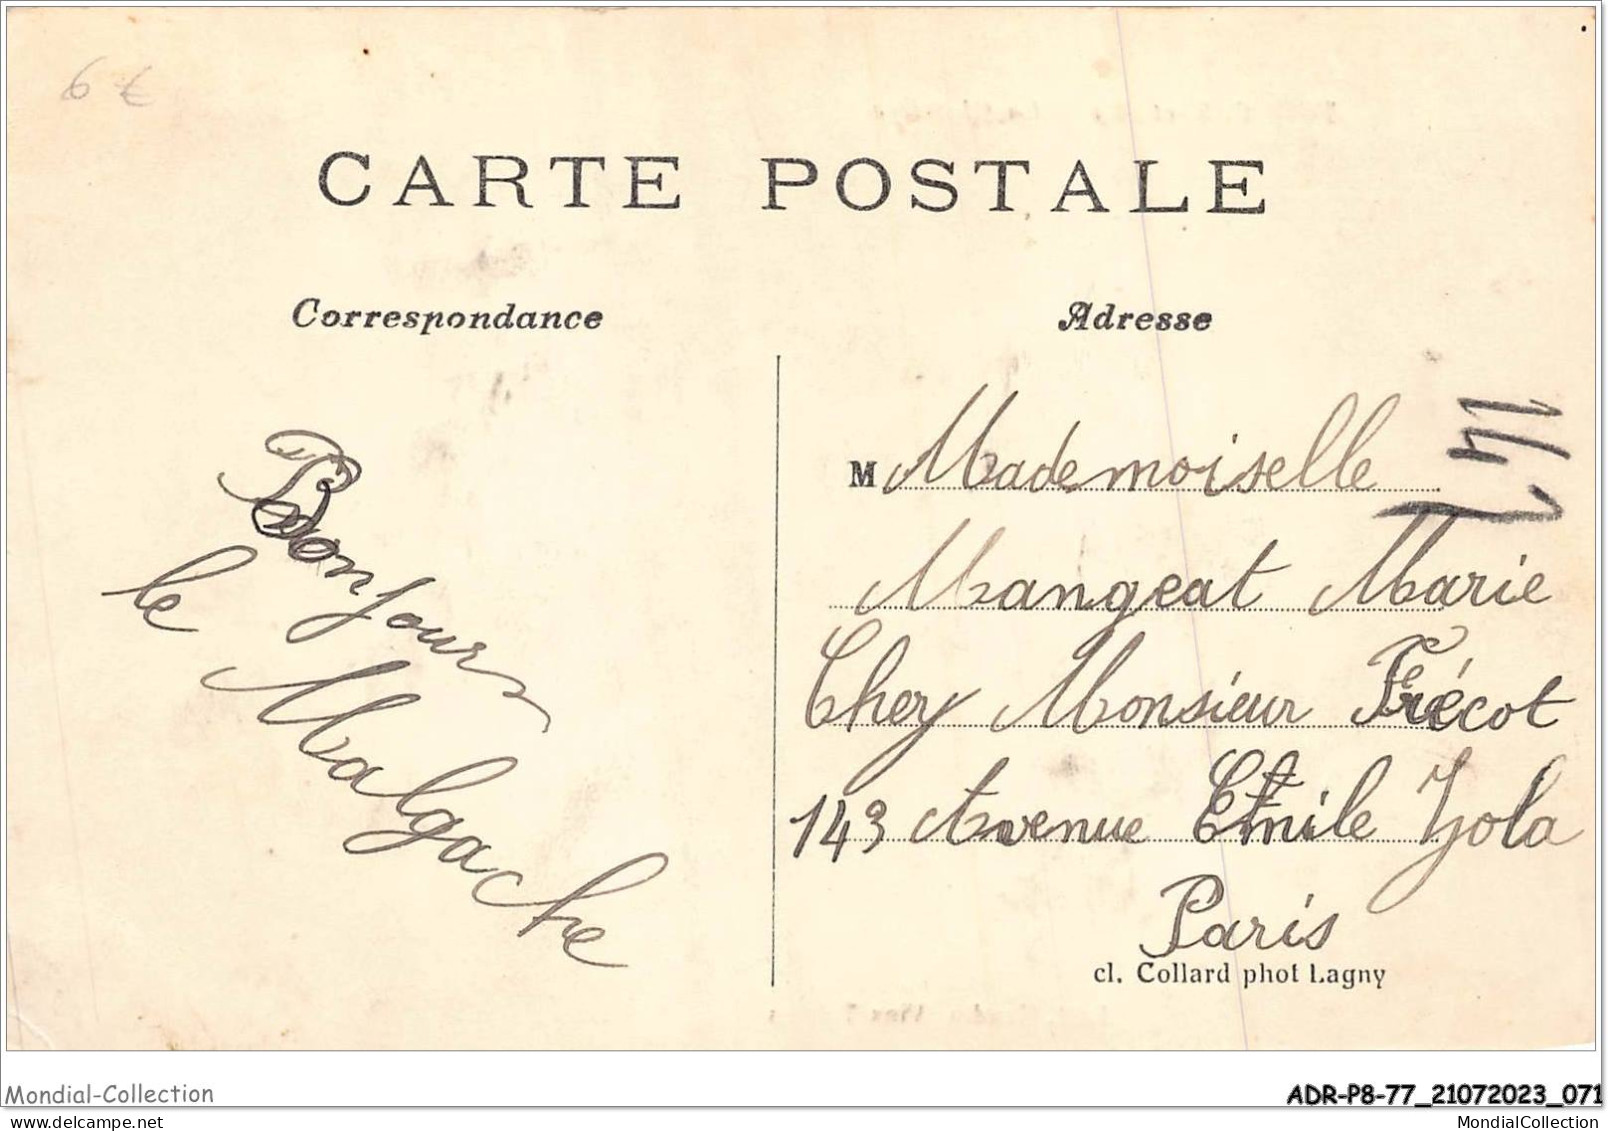 6 €
CARTE POSTALE
Correspondance
Adresse
Bonjour
le Malgache
M Mademoiselle
Mangeat Marie
Chez Monsieur Frécot
143 Avenue Emile Zola
Paris
cl. Collard phot Lagny
Mondial-Collection
ADR-P8-77_21072023_071
www.delcampe.net
MondialCollection